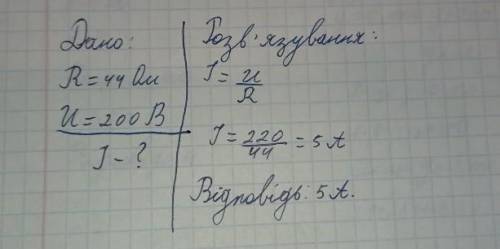 Дано:
R = 44 Ом
U = 200 В
I - ?
Розв'язування:
I = U/R
I = 220/44 = 5 А
Відповідь: 5 А.